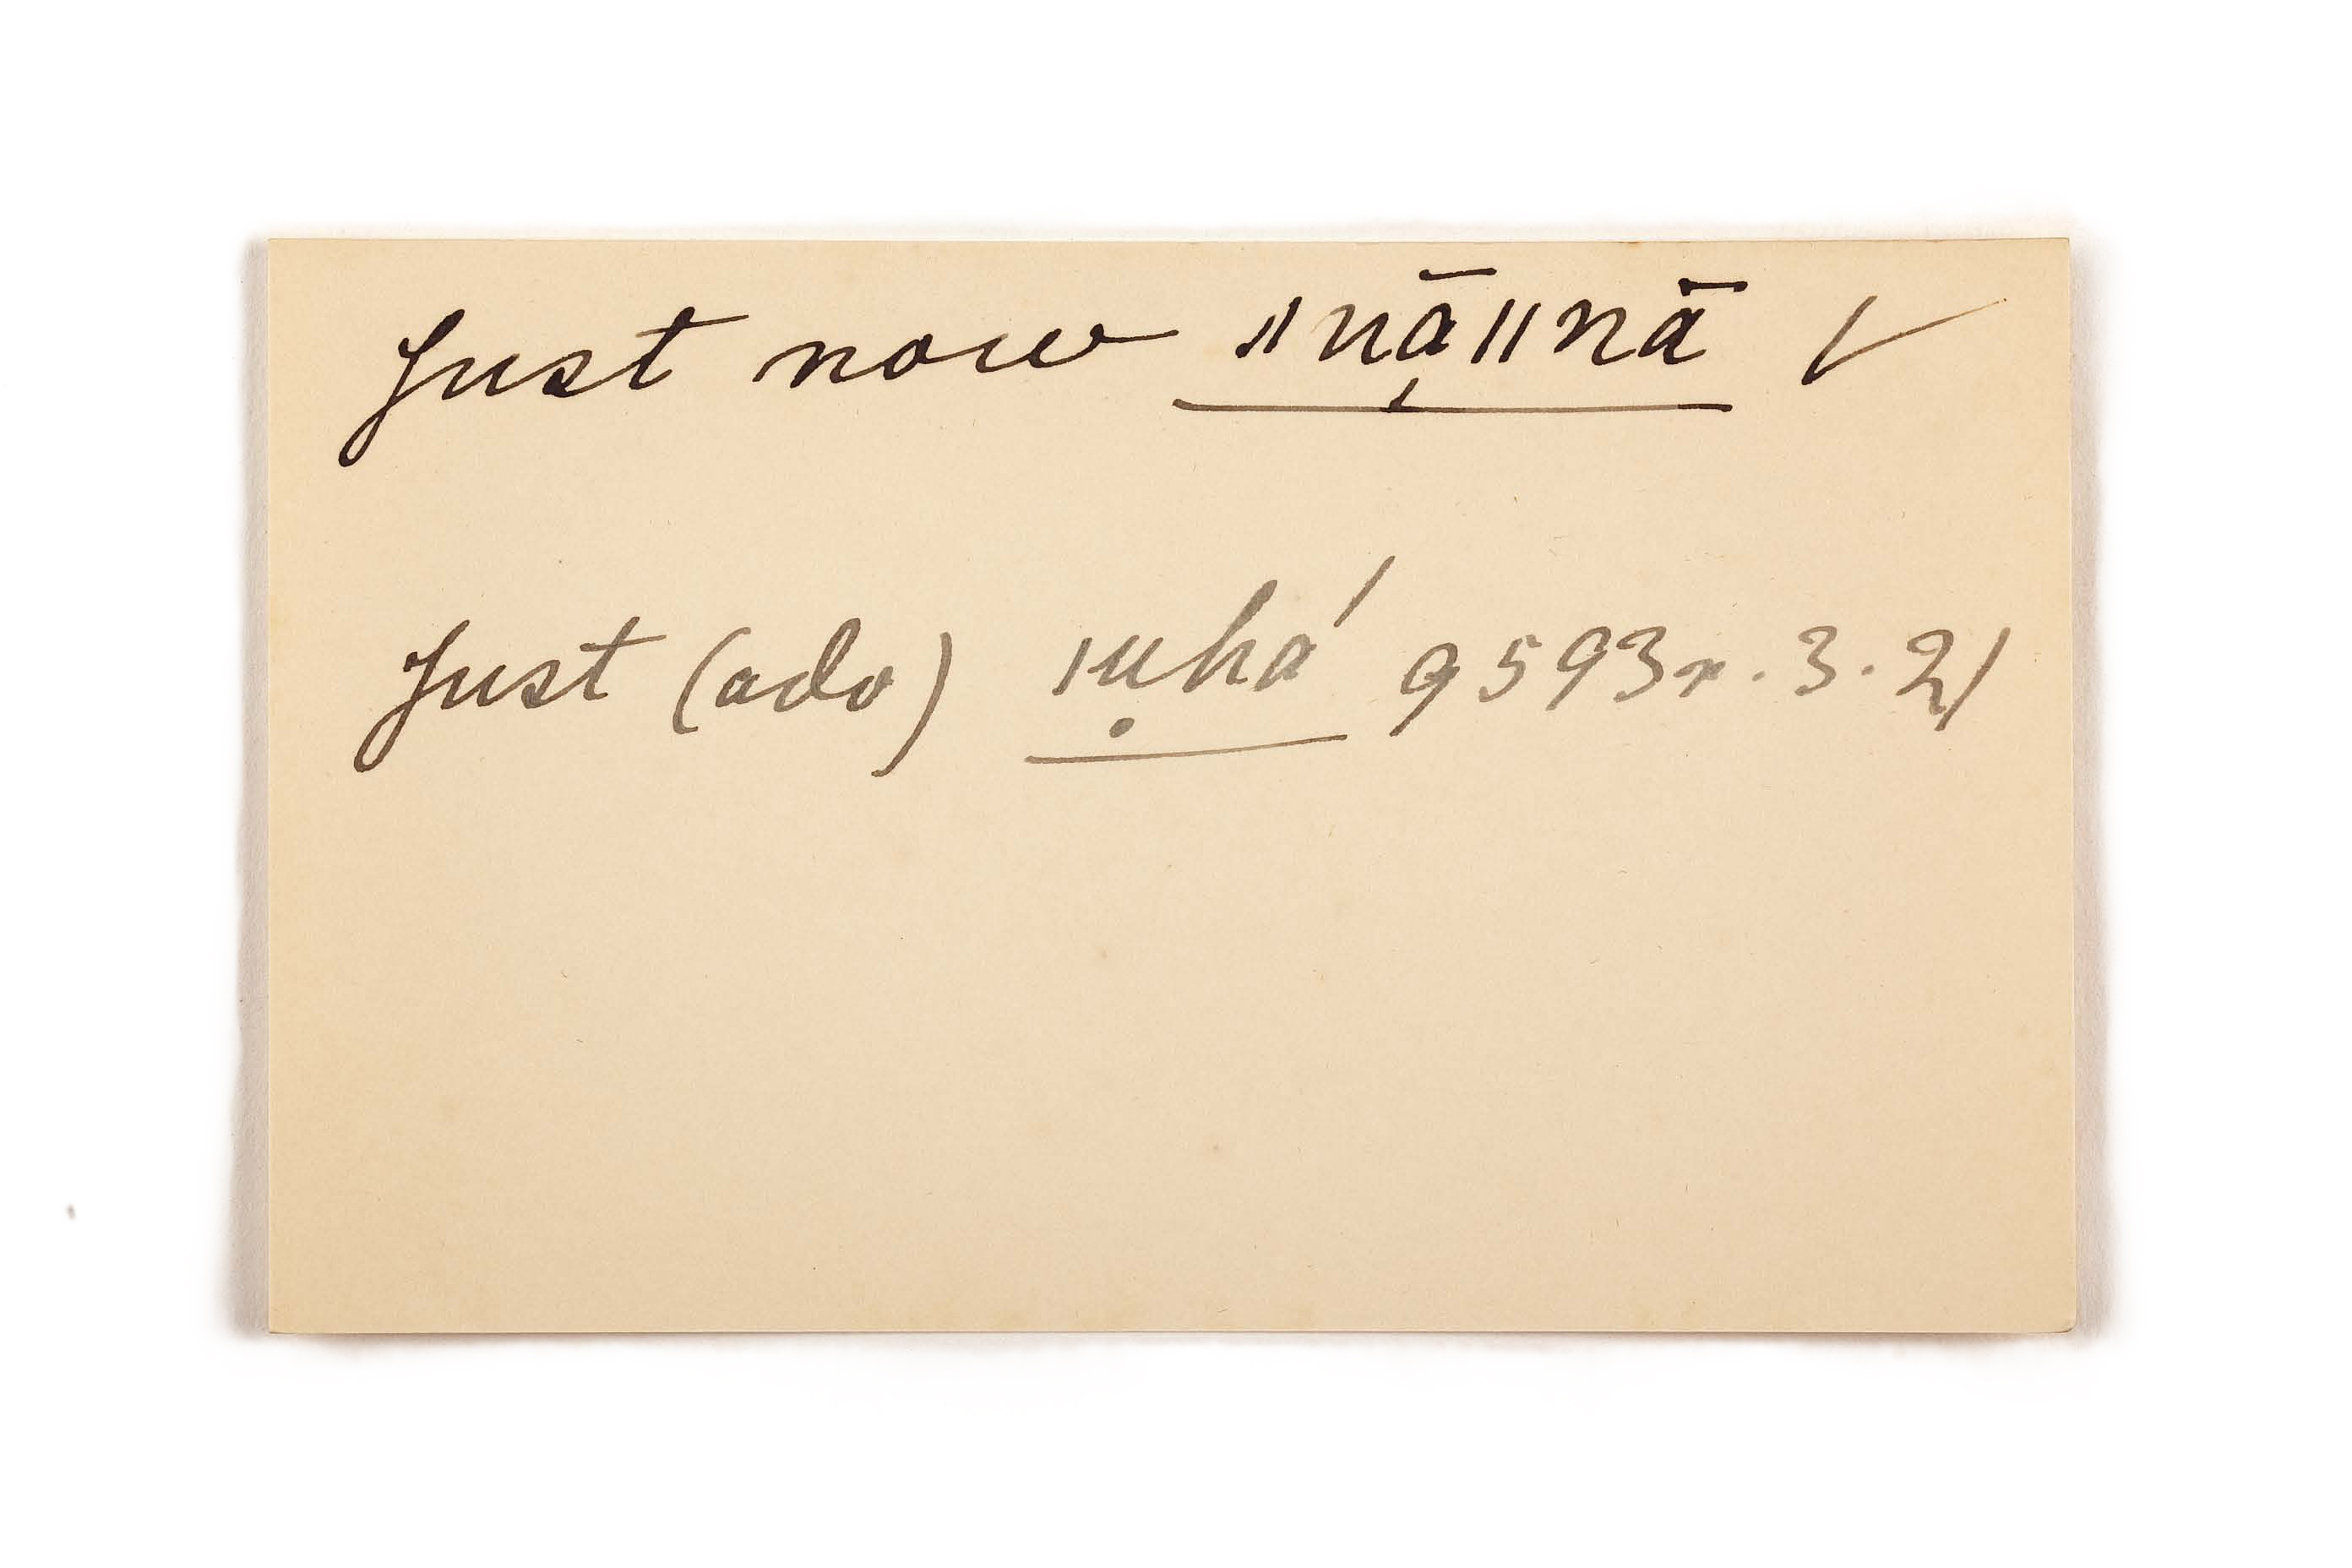 Just now ǁnā̦ǁnā ✓
Just (adv) ǀụhá 9593r.3.21